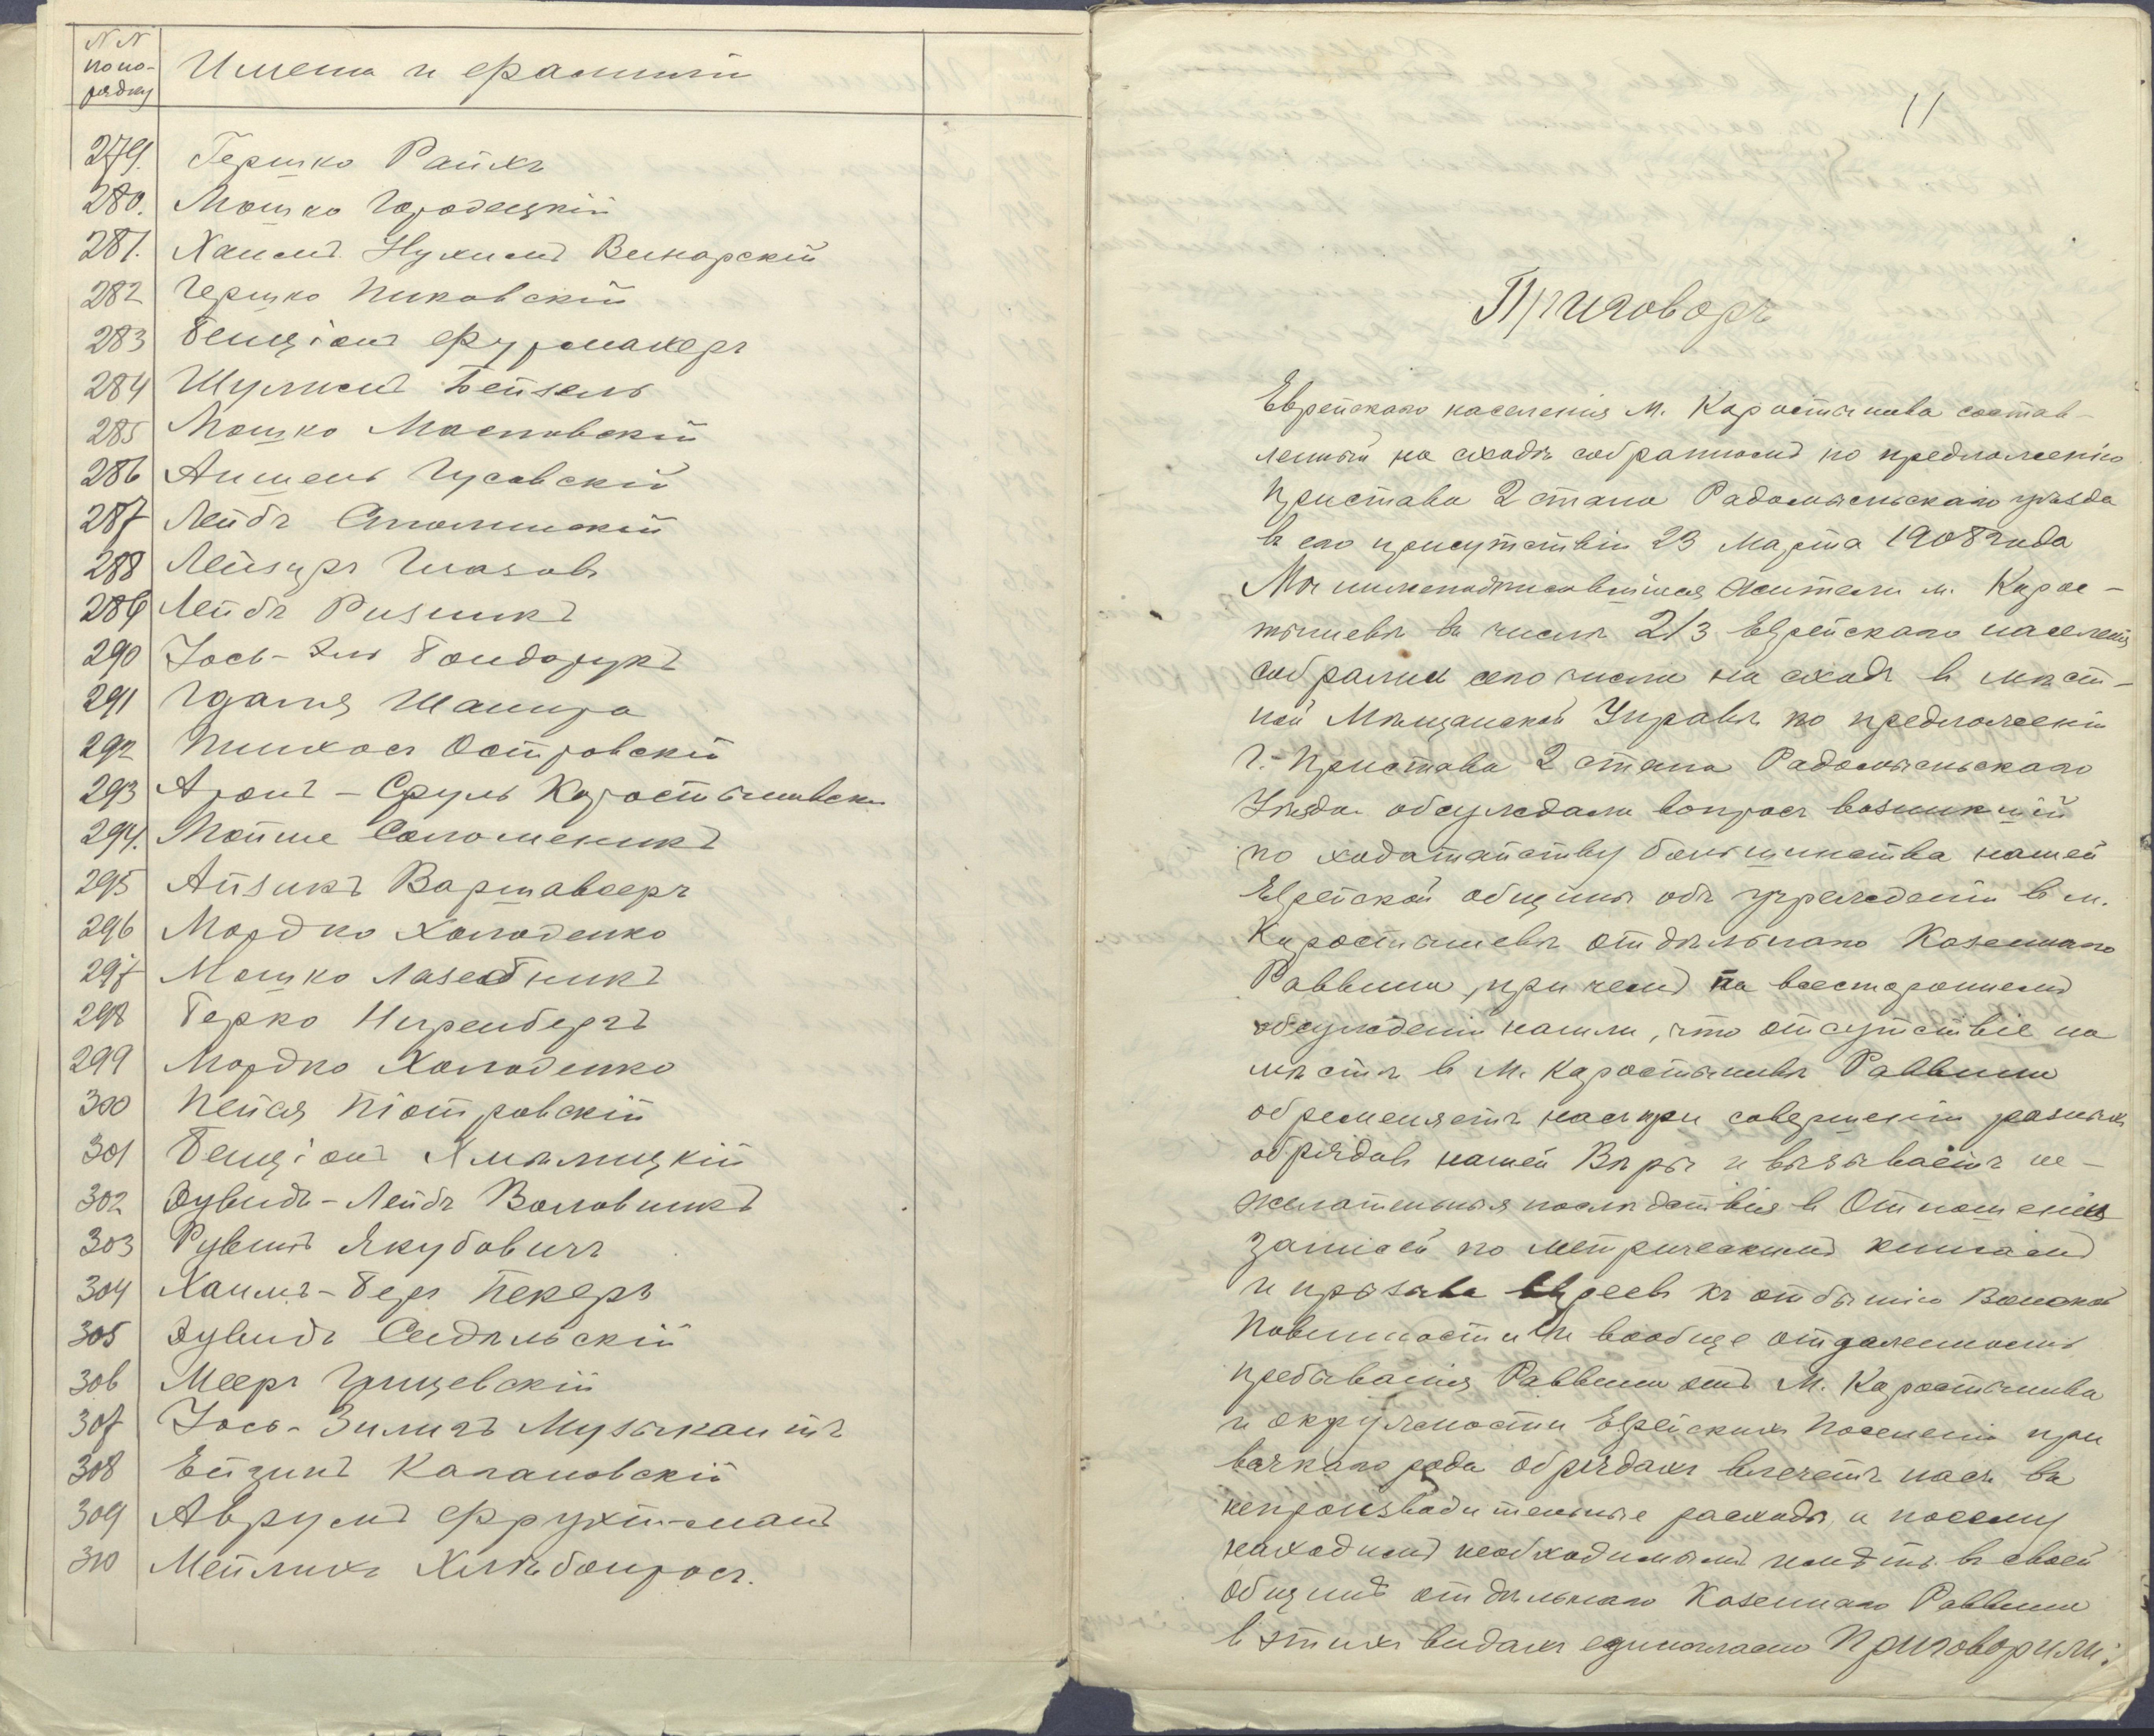 N N
по по-
рядку
Имена и фамилии
279. Гершко Райхъ
280. Мошко Городецкій
281. Хаимъ Нухимъ Винарскій
282 Гершко Пиковскій
283 Бенціонъ Фурмахеръ
284 Шулимъ Бейзель
285 Мошко Масловскій
286 Аншель Гусовскій
287 Лейбъ Сполинскій
288 Лейзеръ Глазовъ
289 Лейбъ Ризникъ
290 Іось-Эль Бондарукъ
291 Гдаля Шапиро
292 Пинхосъ Островскій
293 Аронъ-Сруль Коростышевск
294. Мойше Соломеникъ
295 Айзикъ Варшавверъ
296 Мордко Холоденко
297 Мошко Лазебникъ
298 Берко Ниренбергъ
299 Мордко Холоденко
300 Пейся Піотровскій
301 Бенціонъ Хмѣлницкій
302 Дувидъ-Лейбъ Воловникъ
303 Рувинъ Якубовичъ
304 Хаимъ-Беръ Пекеръ
305 Дувидъ Сидѣльскій
306 Мееръ Грищевскій
307 Іось-Зилигъ Музыкантъ
308 Ейзикъ Кагановскій
309 Аврумъ Фрухтманъ
310 Мейлихъ Хлѣбопросъ.
11
Приговоръ
Еврейскаго населенія м. Коростышева состав-
ленный на сходѣ собранномъ по предложенію
Пристава 2 стана Радомысльскаго уѣзда
въ его присутствіи 23 Марта 1908 года
Мы нижеподписавшіеся жители м. Корос-
тышева въ числѣ 2/3 Еврейскаго населенія
собрались сего числа на сходъ въ мѣст-
ной Мѣщанской Управѣ по предложенію
Г. Пристава 2 стана Радомысльскаго
Уѣзда обсуждали вопросъ возникшій
по ходатайству большинства нашей
Еврейской общины объ учрежденіи въ м.
Коростышевѣ отдѣльнаго Казеннаго
Раввина, при чемъ по всестороннемъ
обсужденіи нашли, что отсутствіе на
мѣстѣ въ м. Коростышевѣ Раввина
обременяетъ насъ при совершеніи разныхъ
обрядовъ нашей Вѣры и вызываетъ не-
желательныя послѣдствія въ Отношеніи
Записей по метрическимъ книгамъ
и призыва евреевъ къ отбытію Воинской
Повинности и вообще отдаленность
пребыванія Раввина отъ м. Коростышева
и окружности Еврейскихъ Поселеній при
всякаго рода обрядахъ влечетъ насъ въ
непроизводительные расходы, и посему
находимъ необходимымъ имѣть въ своей
Общинѣ отдѣльнаго Казеннаго Раввина
въ этихъ видахъ единогласно Приговорили: